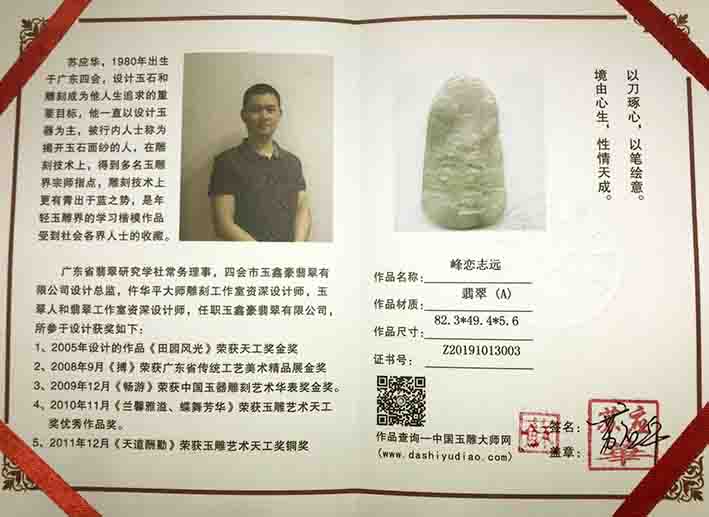 苏应华，1980年出生
于广东四会，设计玉石和
雕刻成为他人生追求的重
要目标，他一直以设计玉
器为主，被行内人士称为
揭开玉石面纱的人，在雕
刻技术上，得到多名玉雕
界宗师指点，雕刻技术上
更有青出于蓝之势，是年
轻玉雕界的学习楷模作品
受到社会各界人士的收藏。
广东省翡翠研究学社常务理事，四会市玉鑫豪翡翠有
限公司设计总监，仵华平大师雕刻工作室资深设计师，玉
翠人和翡翠工作室资深设计师，任职玉鑫豪翡翠有限公司，
所参于设计获奖如下：
1、2005年设计的作品《田园风光》荣获天工奖金奖
2、2008年9月《搏》荣获广东省传统工艺美术精品展金奖
3、2009年12月《畅游》荣获中国玉器雕刻艺术华表奖金奖。
4、2010年11月《兰馨雅溢、蝶舞芳华》荣获玉雕艺术天工
奖优秀作品奖。
5、2011年12月《天道酬勤》荣获玉雕艺术天工奖铜奖
以刀琢心，以笔绘意。
境由心生，性情天成。
作品名称：峰恋志远
作品材质：翡翠 (A)
作品尺寸：82.3*49.4*5.6
证书号：Z20191013003
作品查询—中国玉雕大师网
(www.dashiyudiao.com)
签名：
盖章：